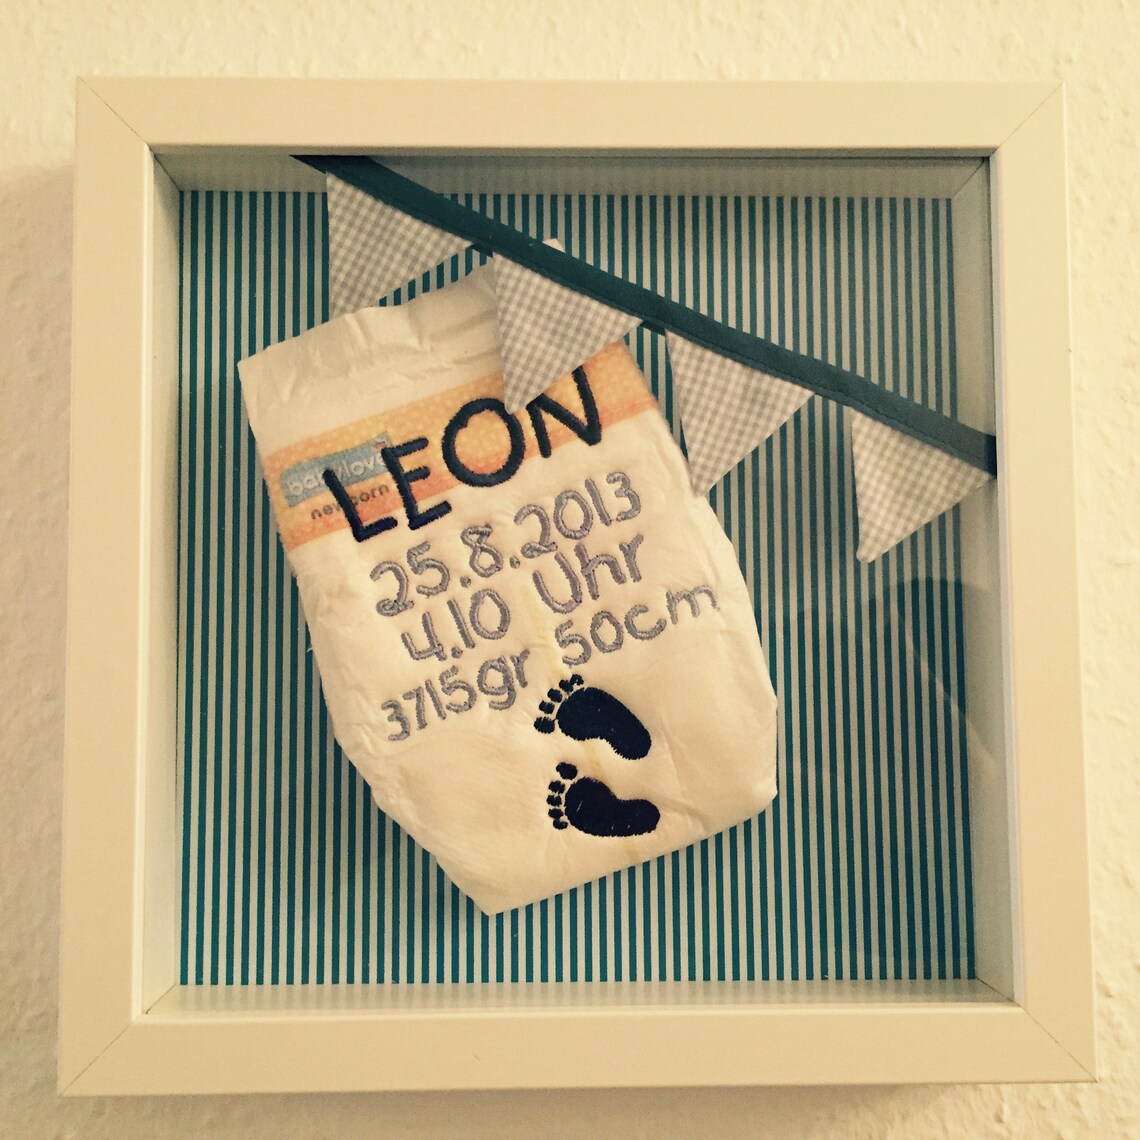 babylove
newborn
LEON
25.8.2013
4.10 Uhr
3715gr 50cm